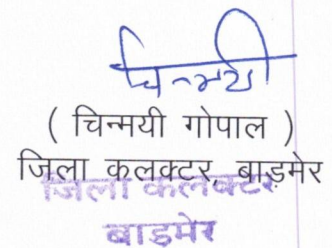 चिन्मयी
( चिन्मयी गोपाल )
जिला कलक्टर, बाड़मेर
जिला कलक्टर
बाडमेर